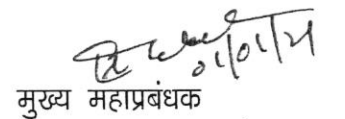 01/01/21
मुख्य महाप्रबंधक